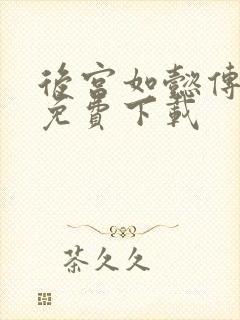 後宮如懿傳
免費下載
茶久久